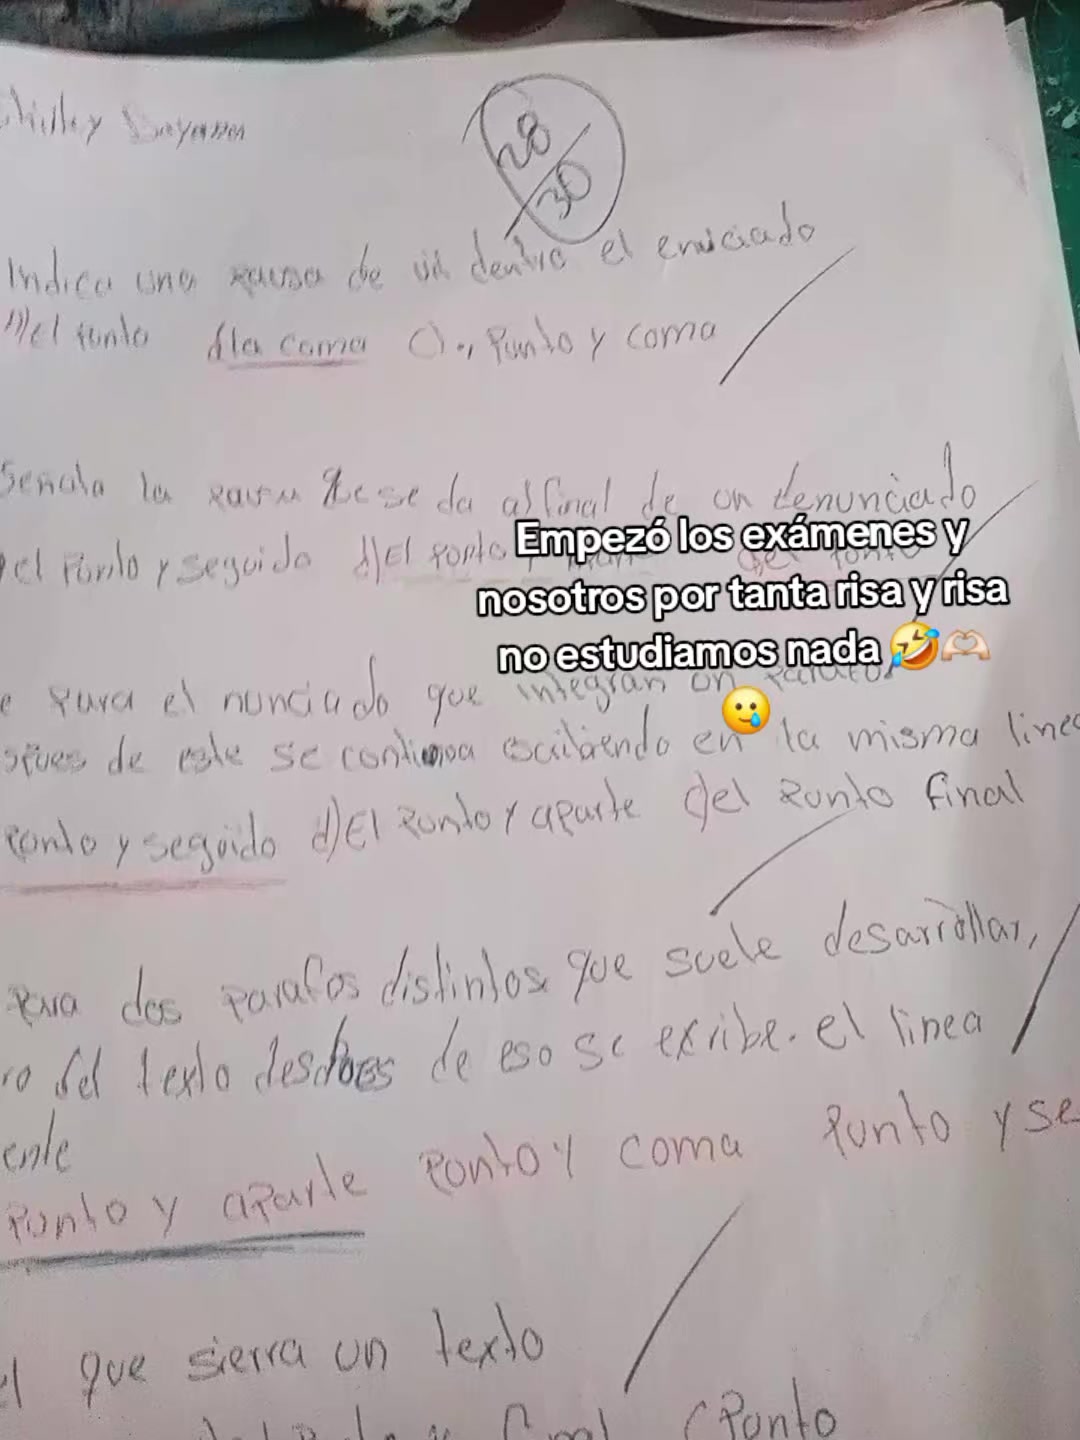 28
30
Indica una pausa de un dentro el enunciado
el punto la coma C)., Punto y coma
Señala la se da al final de un denunciado
el Punto y seguido d)El Punto
Empezó los exámenes y
nosotros por tanta risa y risa
no estudiamos nada 🤣🫶🏻
🥲
el nunciado que integran un
de este se continua escribiendo en la misma linea
Punto y seguido d)El Punto y aparte el Punto final
dos parafos distintos que suele desarrollar,
del texto de eso se exribe. el linea
ente
Punto y aparte Punto y coma Punto y se
que sierra un texto
(Punto